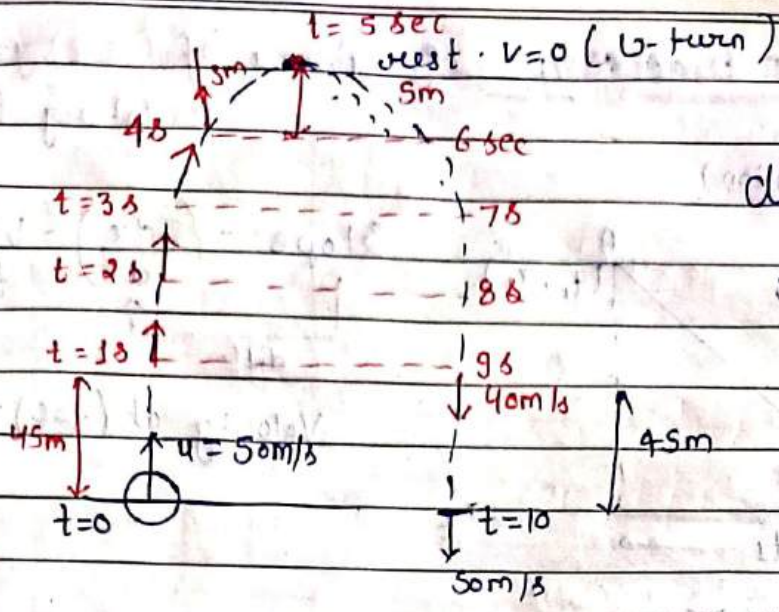 t = 5 sec
rest. v=0 (U-turn)
5m
5m
4s
6 sec
d
t=3s
7s
t=2s
8s
t=1s
9s
40m/s
45m
u = 50m/s
45m
t=0
t=10
50m/s